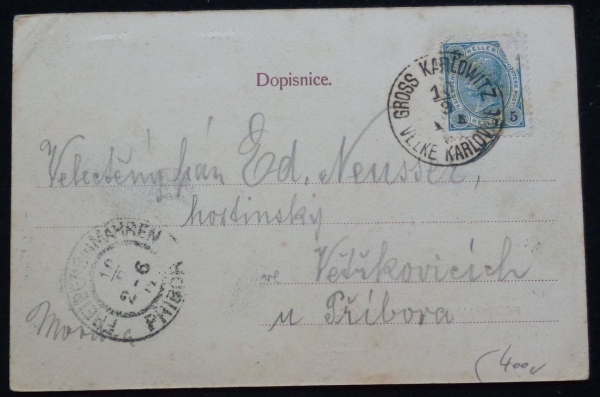 Dopisnice.
HELLER
5 5
GROSS KARLOWITZ
VELKÉ KARLOVICE
Velectěný pán Ed. Neusser,
hostinský
ve Větřkovicích
u Příbora
FREIBERG MÄHREN
PŘÍBOR
Morava
400